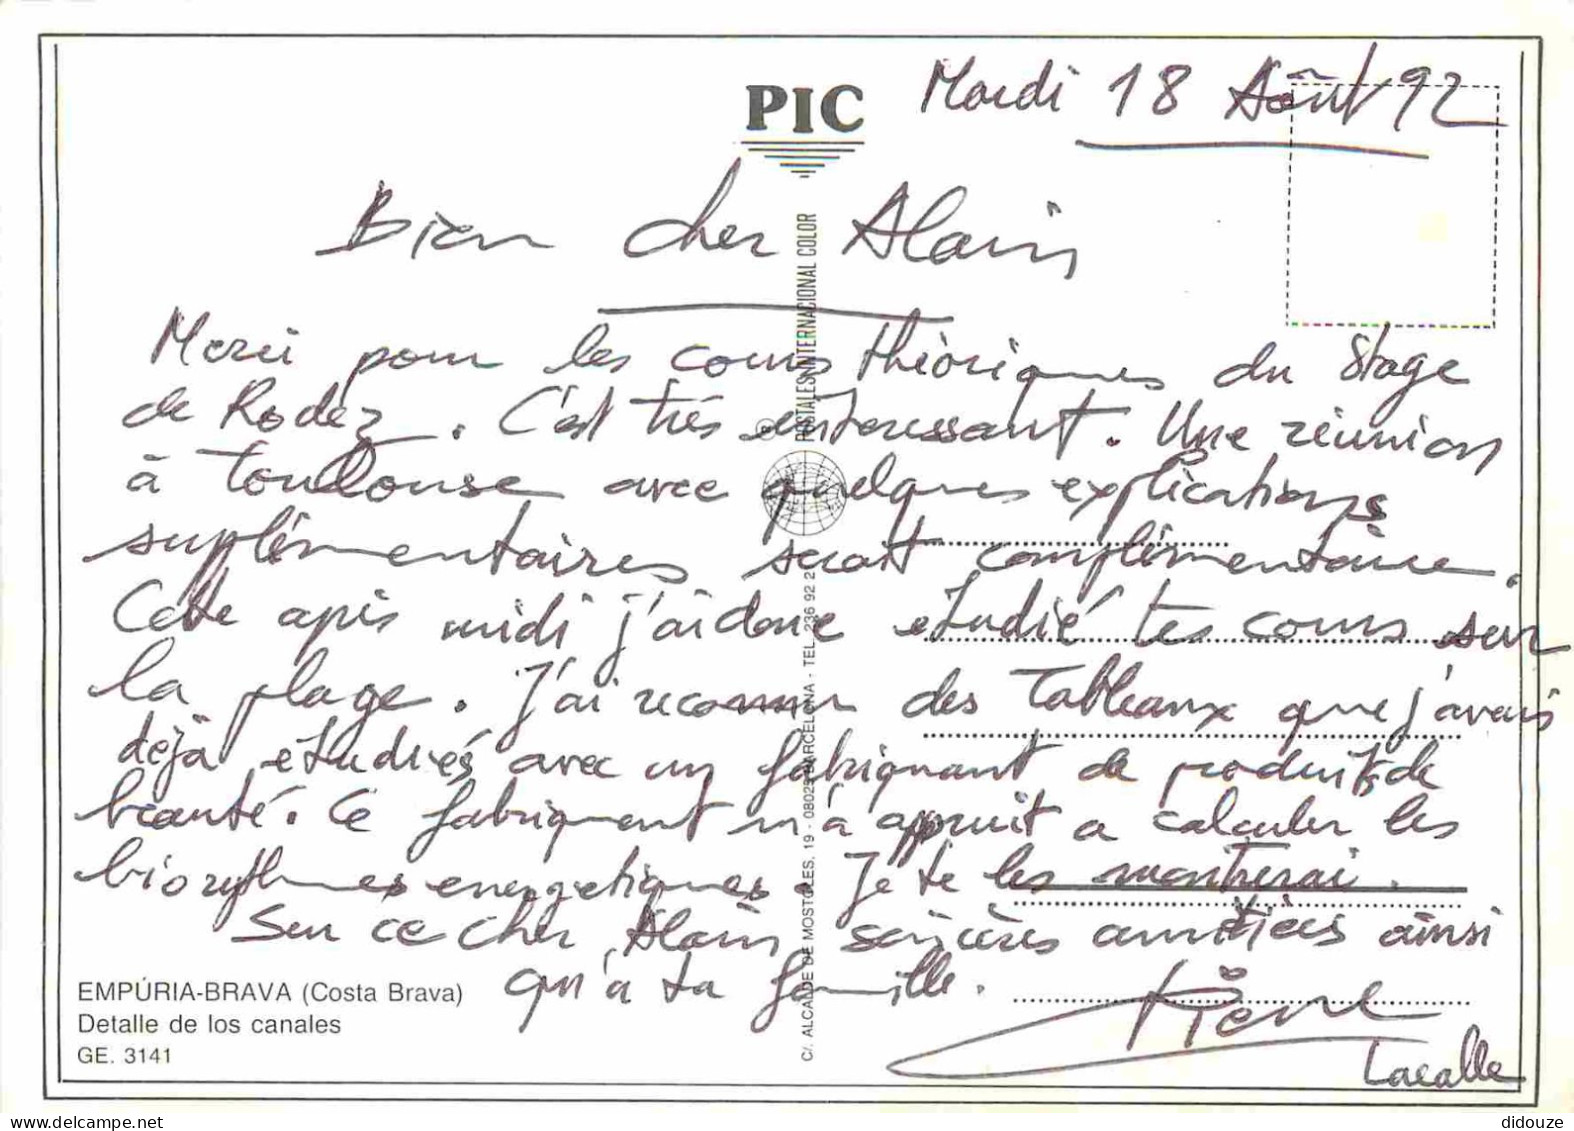 Mardi 18 Août 92
PIC
Bien cher Alain
Merci pour les cours théoriques du stage
de Rodez. C'est très interessant. Une réunion
à Toulouse avec quelques explications
suplémentaires serait complémentaire.
Cette après midi j'ai donc etudié tes cours sur
la plage. J'ai reconnu des tableaux que j'avais
dejà etudiés avec un fabriquant de produits de
beauté. Ce fabriquant m'a appris a calculer les
biorythmes energetiques. Je te les montrerai.
Sur ce cher Alain, sincères amitiés ainsi
qu'à ta famille.
Pierre
Lacalle
EMPÚRIA-BRAVA (Costa Brava)
Detalle de los canales
GE. 3141
© POSTALES INTERNACIONAL COLOR
C/. ALCALDE DE MOSTOLES, 19 - 08025 BARCELONA - TEL. 236 92 2
didouze